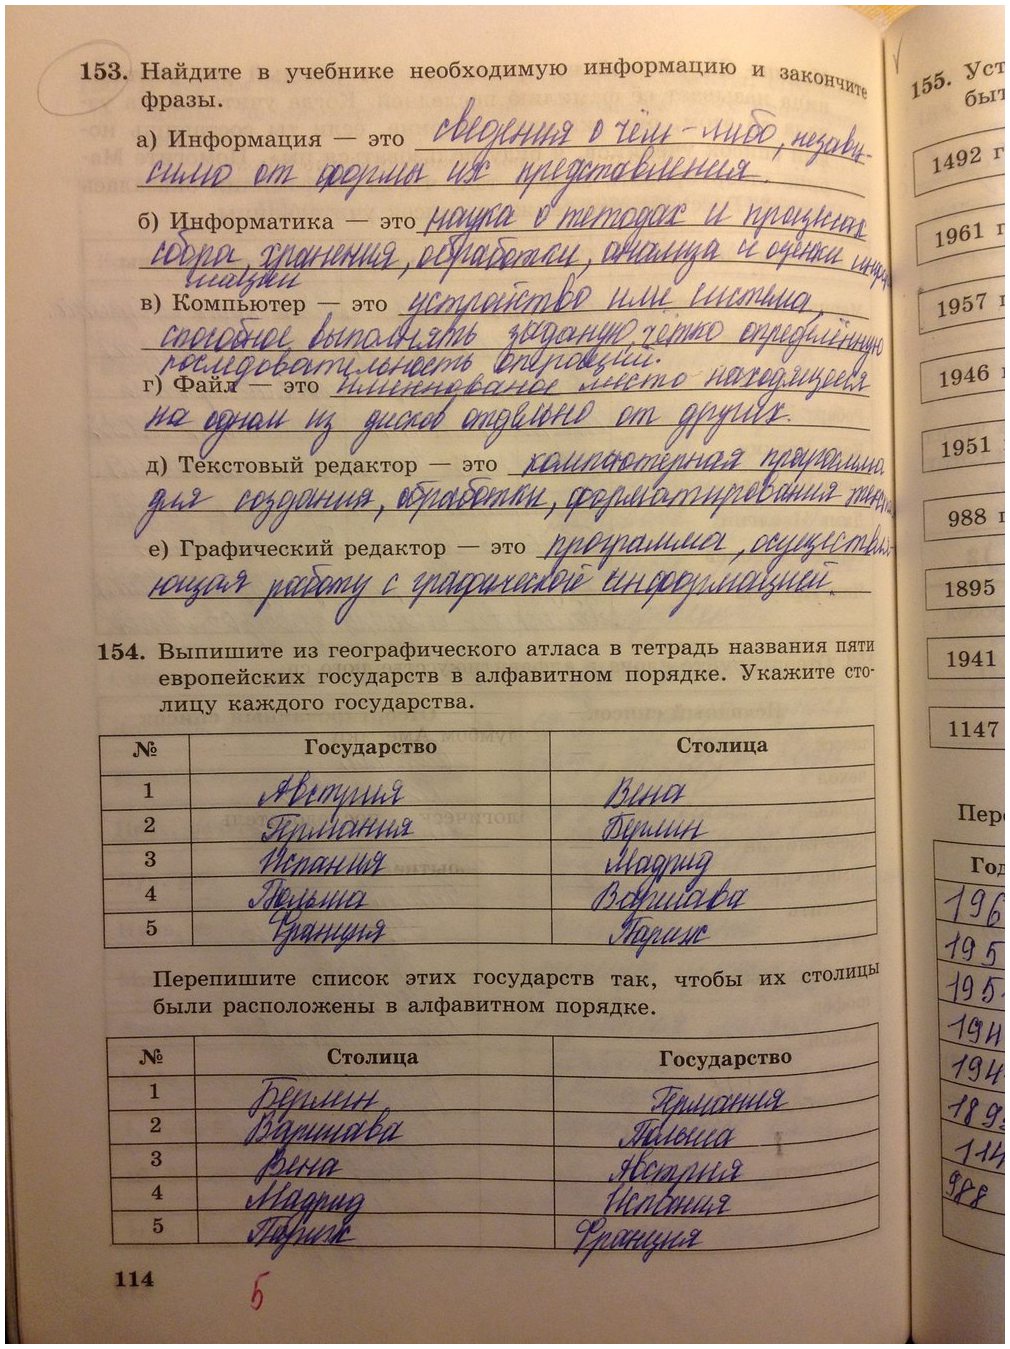 153. Найдите в учебнике необходимую информацию и закончите
фразы.
а) Информация — это сведения о чём-либо, незави-
симо от формы их представления.
б) Информатика — это наука о методах и процессах
сбора, хранения, обработки, анализа и оценки инфор
мации
в) Компьютер — это устройство или система,
способное выполнять заданную чётко определённую
последовательность операций.
г) Файл — это именнованое место находящиеся
на одном из дисков отдельно от других.
д) Текстовый редактор — это компьютерная программа
для создания, обработки, форматирования текста
е) Графический редактор — это программа, осуществля-
ющая работу с графической информацией.
154. Выпишите из географического атласа в тетрадь названия пяти
европейских государств в алфавитном порядке. Укажите сто-
лицу каждого государства.
№ Государство Столица
1 Австрия Вена
2 Германия Берлин
3 Испания Мадрид
4 Польша Варшава
5 Франция Париж
Перепишите список этих государств так, чтобы их столицы
были расположены в алфавитном порядке.
№ Столица Государство
1 Берлин Германия
2 Варшава Польша
3 Вена Австрия
4 Мадрид Испания
5 Париж Франция
114
5
155. Уст
быт
1492 г
1961 г
1957 г
1946 г
1951
988 г
1895
1941
1147
Пере
Год
196
195
195
194
194
189
114
988